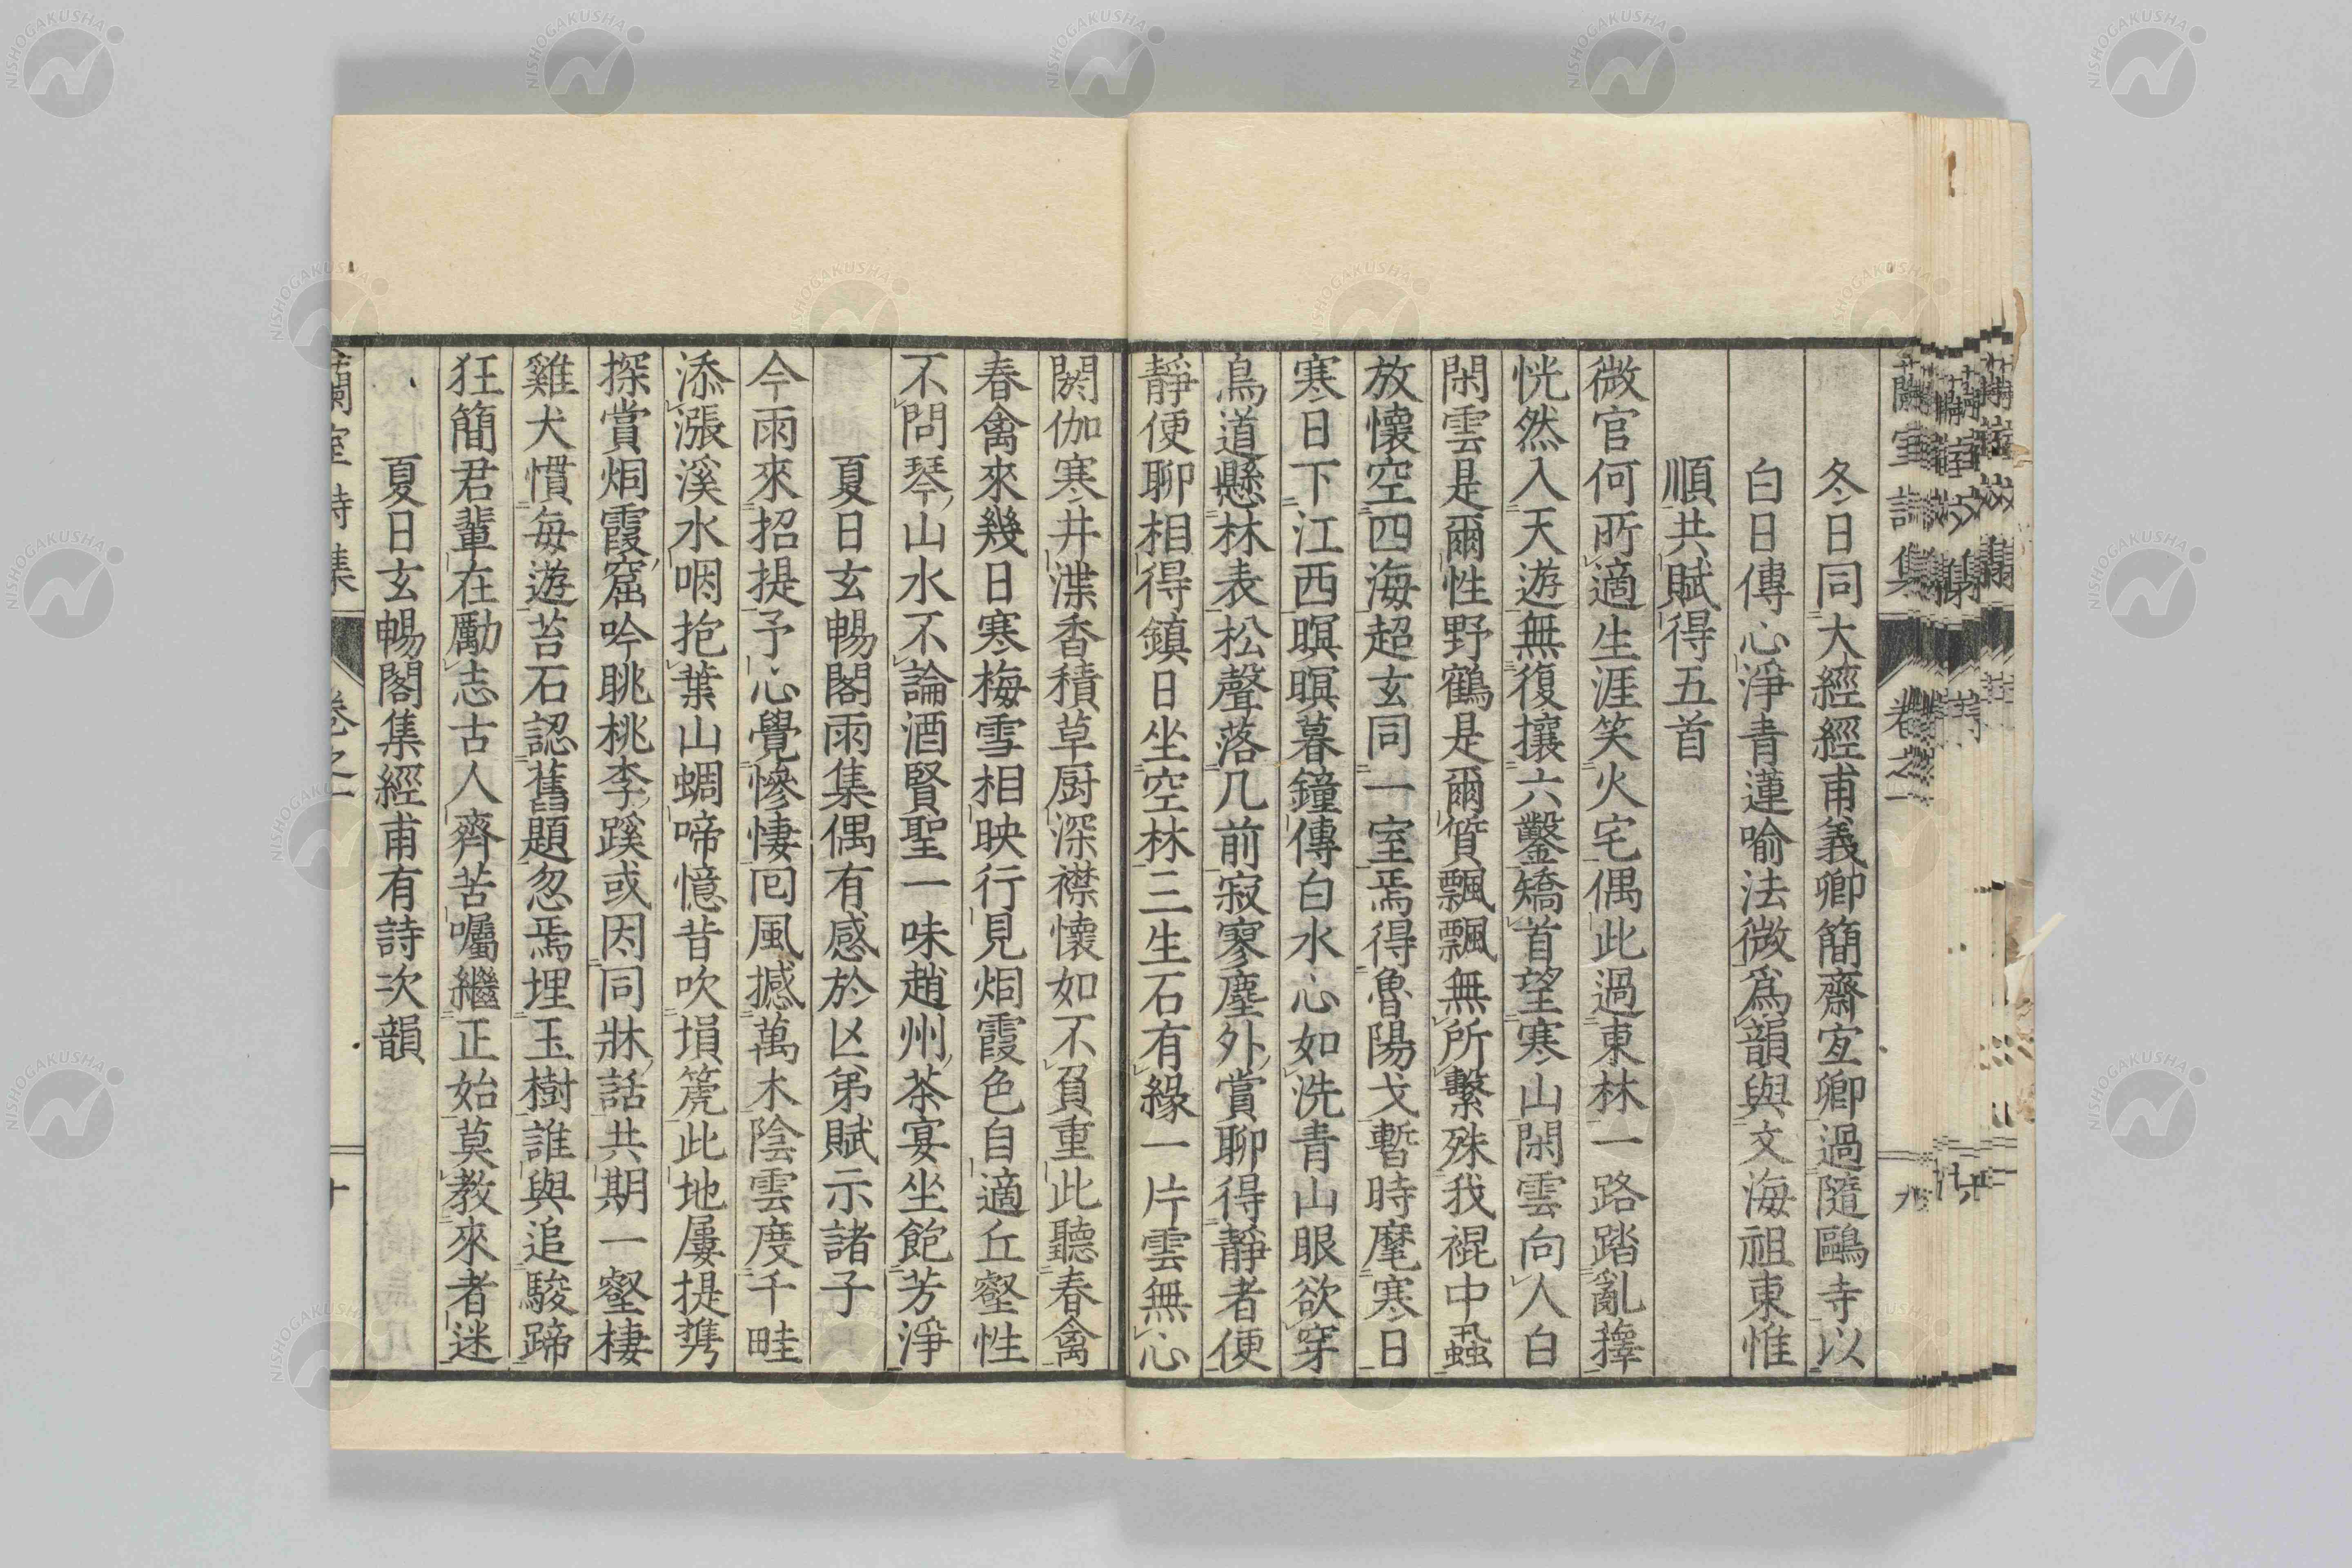 冬日同大經經甫義卿簡齋宐卿過隨鷗寺以
白日傳心淨青蓮喻法微爲韻與文海祖東惟
順共賦得五首
微官何所適生涯笑火宅偶此過東林一路踏亂蘀
恍然入天遊無復攘六鑿矯首望寒山閑雲向人白
閑雲是爾性野鶴是爾質飄飄無所繫殊我裩中蝨
放懷空四海超玄同一室焉得魯陽戈暫時麾寒日
寒日下江西暝暝暮鐘傳白水心如洗青山眼欲穿
鳥道懸林表松聲落几前寂寥塵外賞聊得靜者便
靜便聊相得鎮日坐空林三生石有緣一片雲無心
閼伽寒井渫香積草厨深襟懷如不負重此聽春禽
春禽來幾日寒梅雪相映行見烟霞色自適丘壑性
不問琴山水不論酒賢聖一味趙州茶宴坐飽芳淨
夏日玄暢閣雨集偶有感於亾弟賦示諸子
今雨來招提予心覺慘悽回風撼萬木陰雲度千畦
添漲溪水咽抱葉山蜩啼憶昔吹塤箎此地屢提携
探賞烟霞窟吟眺桃李蹊或因同牀話共期一壑棲
雞犬慣每遊苔石認舊題忽焉埋玉樹誰與追駿蹄
狂簡君輩在勵志古人齊苦囑繼正始莫教來者迷
夏日玄暢閣集經甫有詩次韻
蘭室詩集 卷之一 十
蘭室詩集 卷之一 九
NISHOGAKUSHA